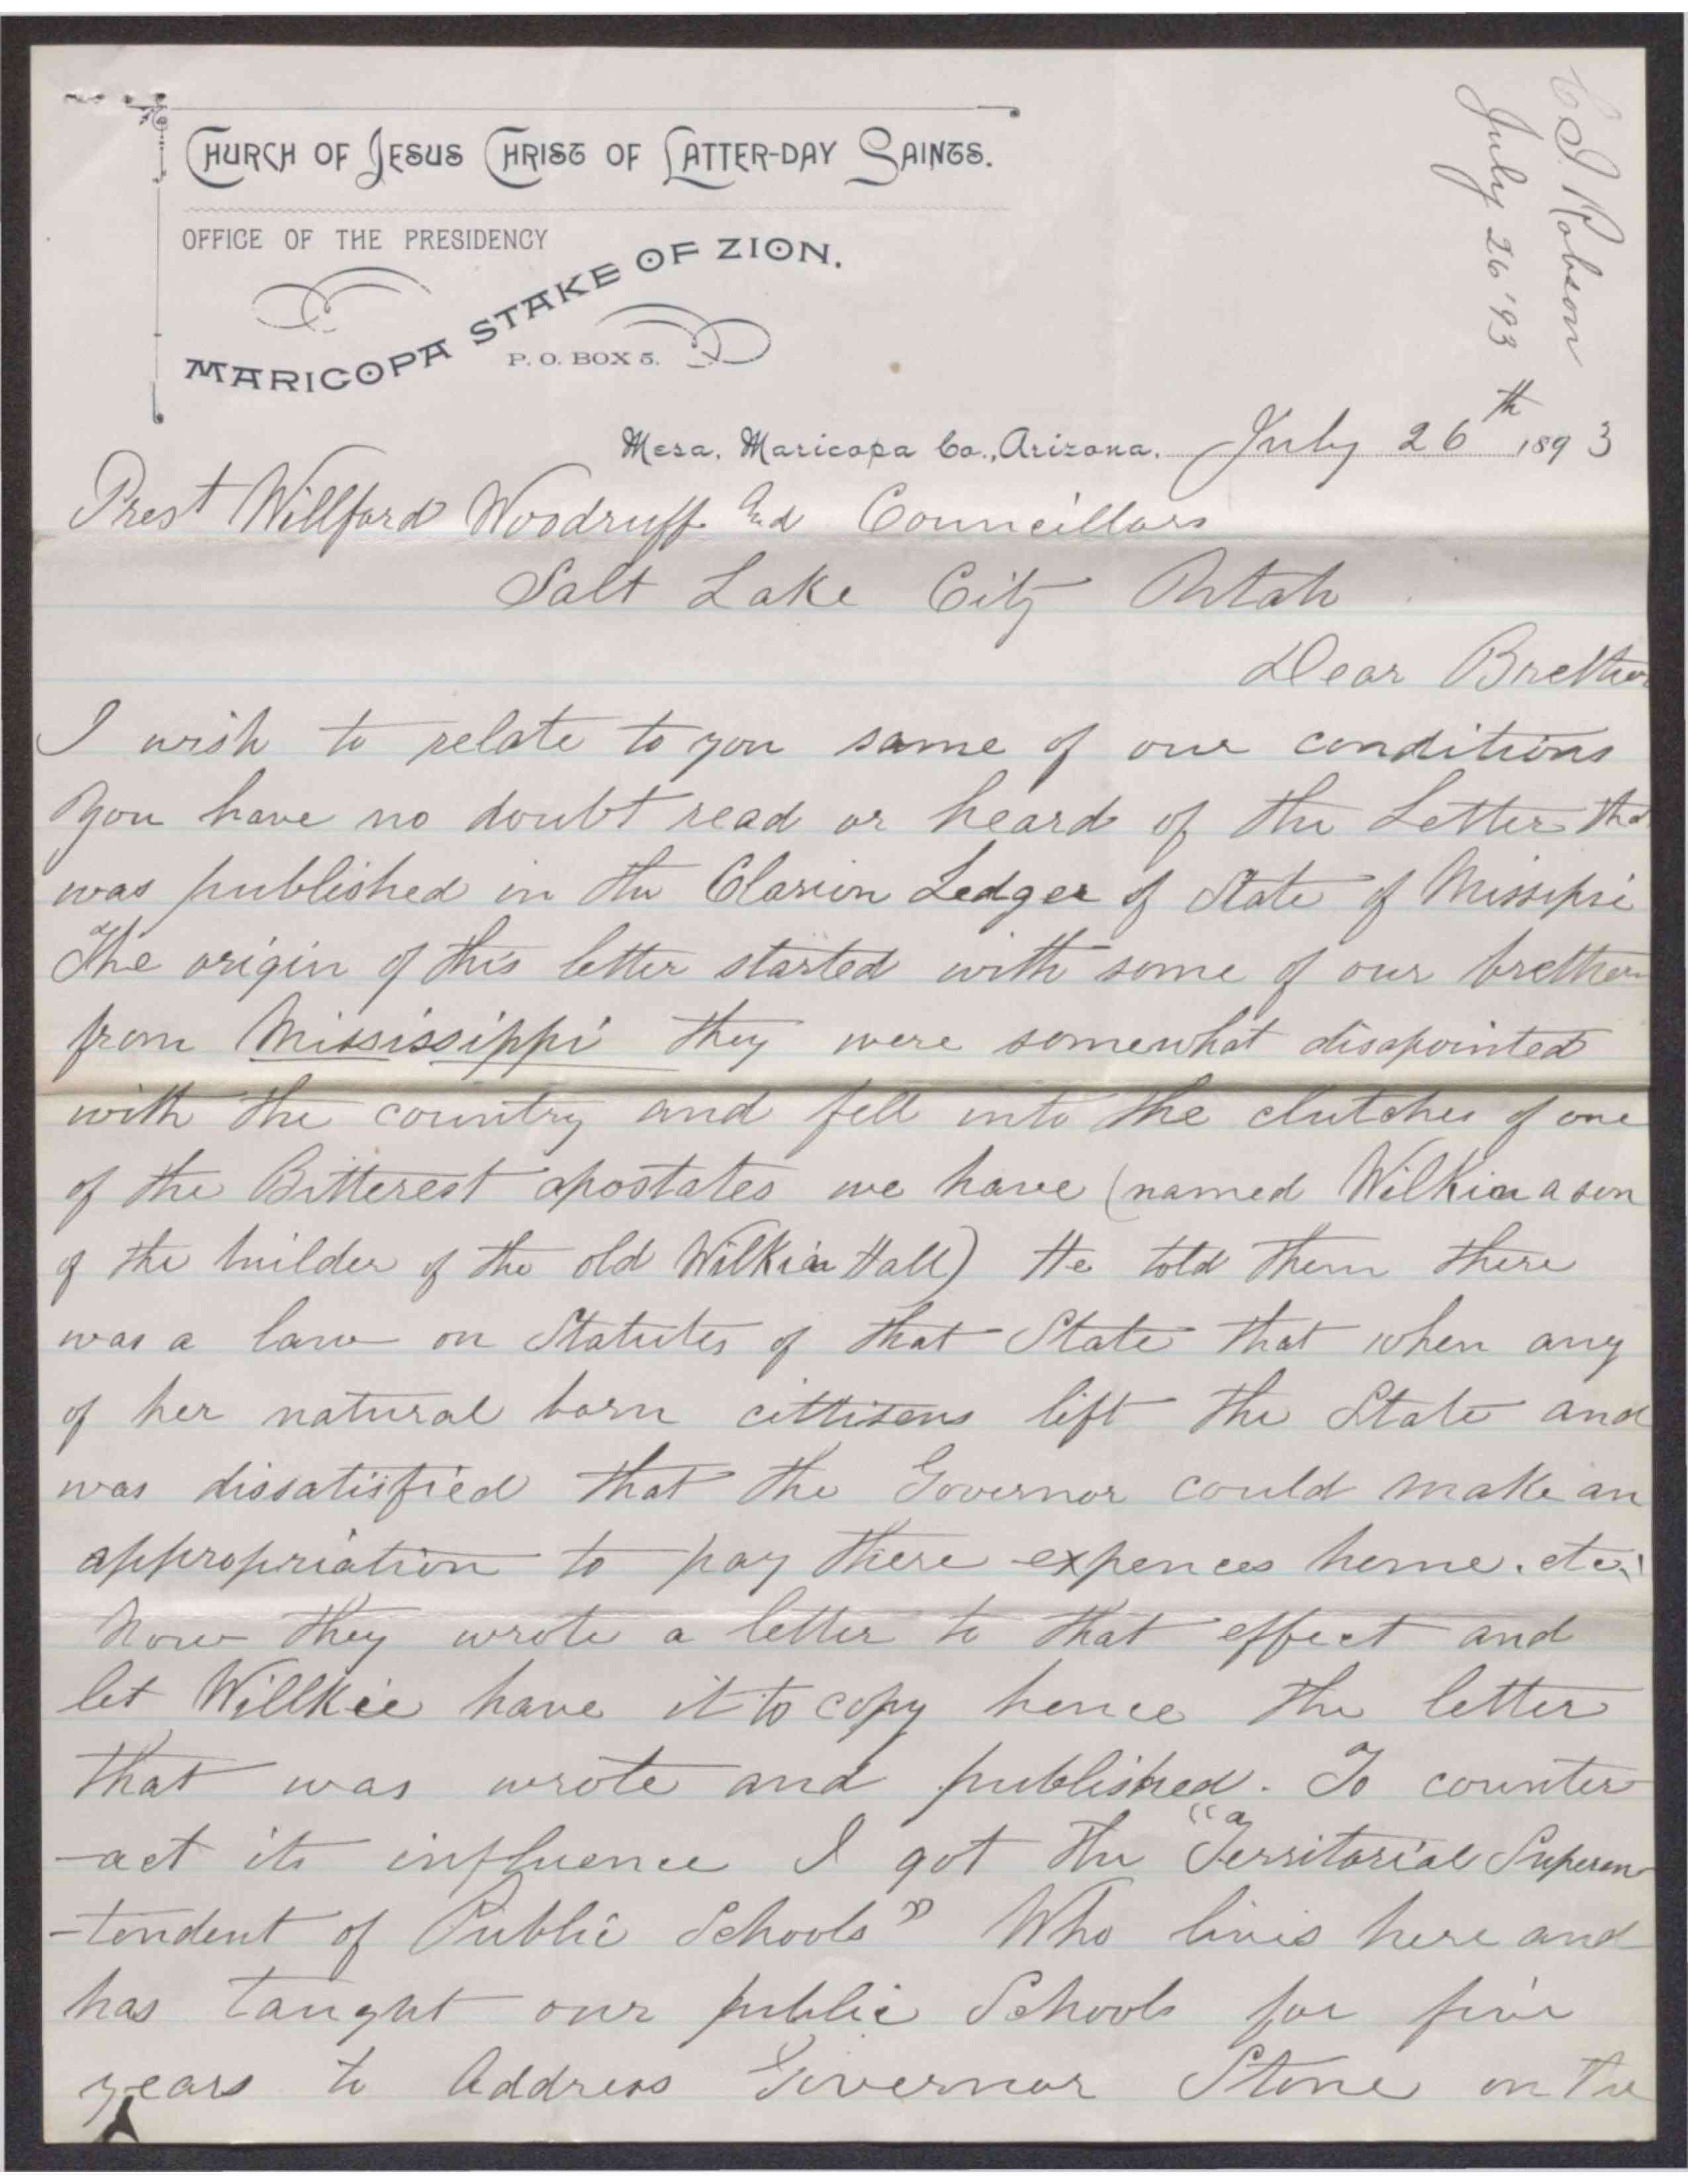 CHURCH OF JESUS CHRIST OF LATTER-DAY SAINTS.
OFFICE OF THE PRESIDENCY
MARICOPA STAKE OF ZION.
P. O. BOX 5.
C I Robson
July 26 '93
Mesa, Maricopa Co., Arizona, July 26th 1893
Prest Willford Woodruff And Councillors
Salt Lake City Utah
Dear Brethren
I wish to relate to you some of our conditions
You have no doubt read or heard of the Letter that
was published in the Clarion Ledger of State of Missipsi
The origin of this letter started with some of our brethren
from Mississippi they were somewhat disapointed
with the country and fell into the clutches of one
of the Bitterest apostates we have (named Wilkin a son
of the builder of the old Wilkin Hall) He told them there
was a law on Statutes of that State that when any
of her natural born cittisens lift the State and
was dissatisfied that the Governor could make an
appropriation to pay there expences home. etc.
Now they wrote a letter to that effect and
let Willkie have it to copy hence the letter
that was wrote and published. To counter
-act its influence I got the "a Territorial Superen
-tendent of Public Schools" Who lives here and
has taught our public Schools for five
years to Address Governor Stone on the